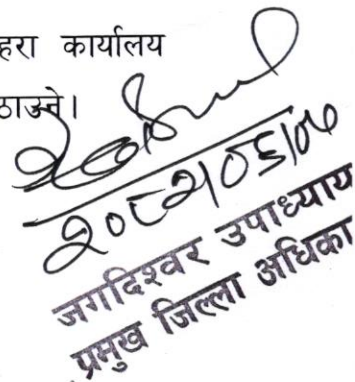 हरा कार्यालय
ठाउने।
२०८२/०६/०७
जगदिश्वर उपाध्याय
प्रमुख जिल्ला अधिका